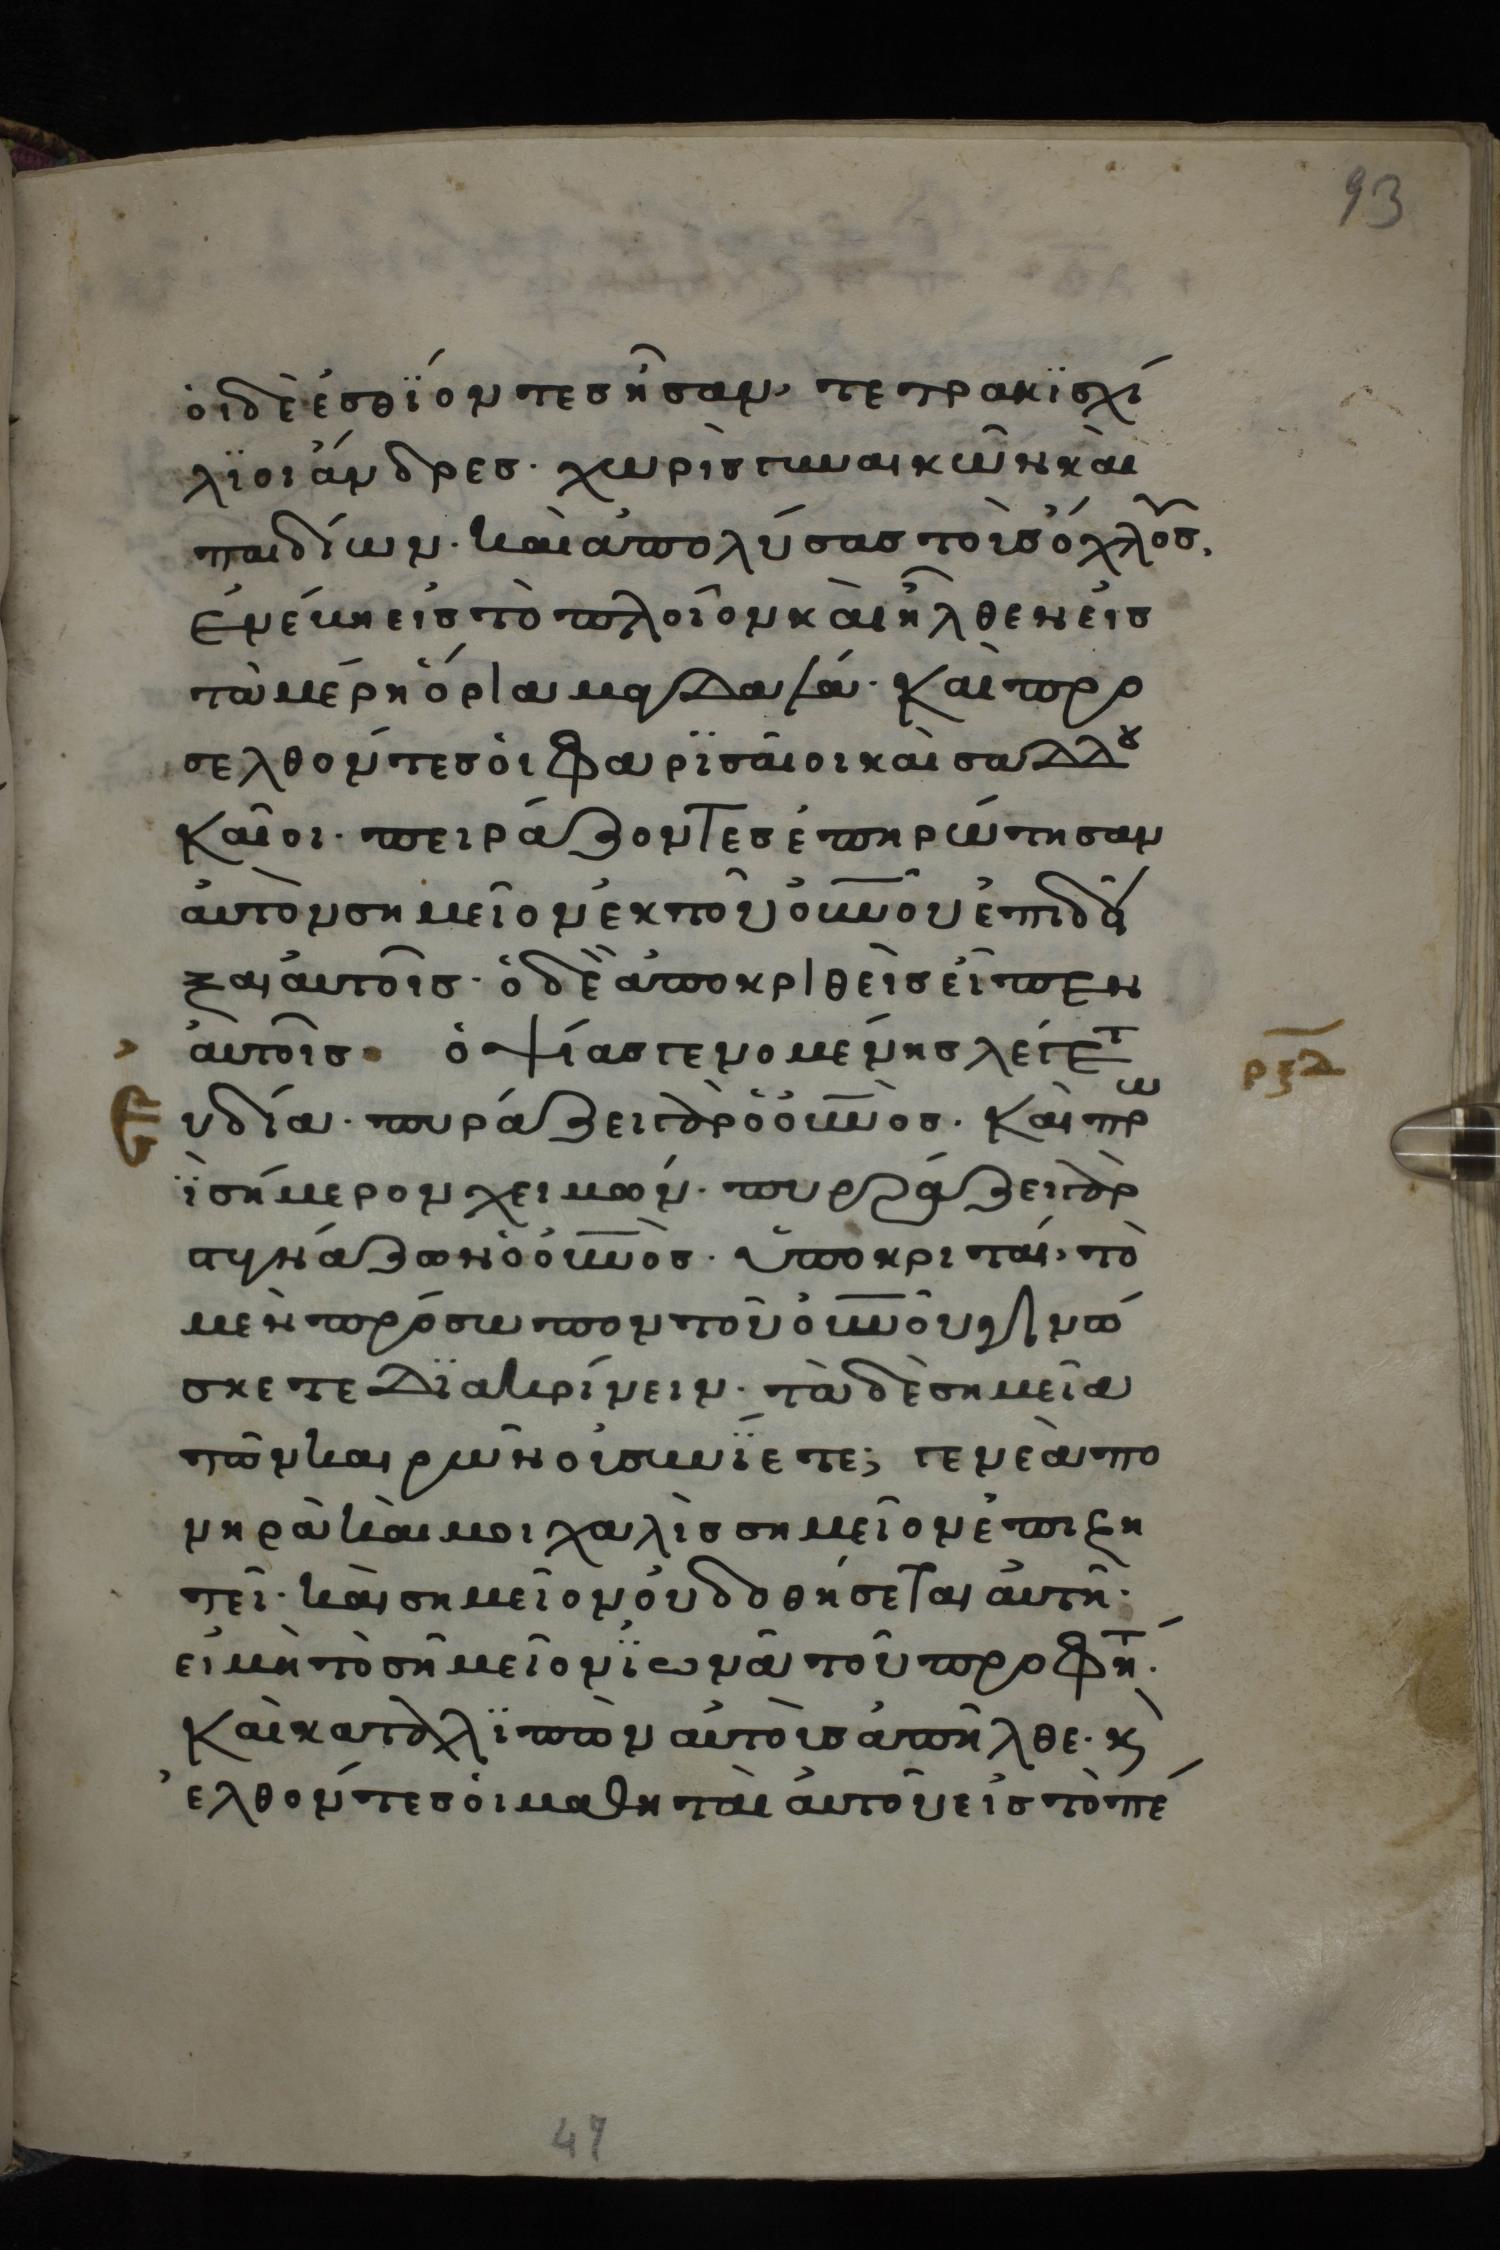 93
ὁι δὲ ἐσθΐοντεσ ἦσαν, τετρακϊσχί
λϊοι ἄνδρεσ· χωρὶσ γυναικῶν καὶ
παιδίων· καὶ ἀπολύσασ τοὺσ ὄχλουσ,
ἐνέβη εἰσ τὸ πλοῖον καὶ ἦλθεν εἰσ
τὰ μέρη ὅρια μαγδαλά· καὶ προ
σελθόντεσ ὁι φαρϊσαῖοι καὶ σαδδου
καῖοι· πειράζοντεσ ἐπηρώτησαν
ἀυτὸν σημεῖον ἐκ τοῦ ὀυνοῦ ἐπιδεῖ
ξαι ἀυτοῖσ· ὁ δὲ ἀποκριθεὶσ εἶπεν
ἀυτοῖσ· ὀψίασ γενομένησ λέγετ
ρξδ
υδία· πυράζει γὰρ ὁ ὀυνὸσ· καὶ πρω
ῒ σήμερον χειμών· πυράζει γὰρ
στυγνάζων ὁ ὀυνὸσ· ὑποκριταί, τὸ
μὲν πρόσωπον τοῦ ὀυνοῦ γινώ
σκετε δϊακρίνειν· τὰ δὲ σημεῖα
τῶν καιρῶν οὐ συνΐετε; γενεὰ πο
νηρὰ καὶ μοιχαλὶσ σημεῖον ἐπιζη
τεῖ· καὶ σημεῖον ὀυ δοθήσεται ἀυτῆ·
εἰ μὴ τὸ σημεῖον ϊωνᾶ τοῦ προφήτ·
καὶ καταλϊπὼν ἀυτοὺσ ἀπῆλθε· κ
ἐλθόντεσ ὁι μαθηταὶ ἀυτοῦ εἰσ τὸ πέ
49